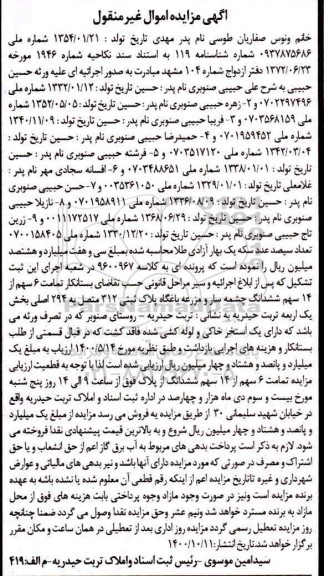 آگهی مزایده اموال غیر منقول
خانم ونوس صفاریان طوسی نام پدر مهدی تاریخ تولد : ۱۳۵۴/۰۱/۲۱ شماره ملی
۰۹۳۷۸۷۵۶۸۶ شماره شناسنامه ۱۱۹ به استناد سند نکاحیه شماره ۱۹۴۶ مورخه
۱۳۷۲/۰۶/۲۳ دفتر ازدواج شماره ۱۰۴ مشهد مبادرت به صدور اجرائیه ای علیه ورثه حسین
حبیبی به شرح علی حبیبی صنوبری نام پدر : حسین تاریخ تولد : ۱۳۳۲/۰۱/۱۲ شماره ملی
۰۷۰۲۲۹۷۴۹۶ و ۲- زهره حبیبی صنوبری نام پدر : حسین تاریخ تولد : ۱۳۵۲/۰۵/۰۵ شماره
ملی ۰۷۰۳۵۶۸۱۵۹ و ۳- فریبا حبیبی صنوبری نام پدر : حسین تاریخ تولد : ۱۳۴۰/۱۱/۰۹
شماره ملی ۰۷۰۱۹۵۹۴۵۲ و ۴- حمیدرضا حبیبی صنوبری نام پدر : حسین تاریخ تولد :
۱۳۴۲/۰۳/۰۴ شماره ملی ۰۷۰۳۵۱۷۱۲۰ و ۵- فرشته حبیبی صنوبری نام پدر : حسین
تاریخ تولد : ۱۳۳۸/۰۱/۰۱ شماره ملی ۰۷۰۳۴۸۸۶۵۱ و ۶- افسانه سجادی مهر نام پدر :
غلامعلی تاریخ تولد : ۱۳۲۹/۰۱/۰۱ شماره ملی ۰۰۳۵۳۶۱۰۵۰ و ۷- حسن حبیبی صنوبری
نام پدر : حسین تاریخ تولد : ۱۳۳۶/۰۸/۰۹ شماره ملی ۰۷۰۱۹۵۸۹۱۱ و ۸- نازیلا حبیبی
صنوبری نام پدر : حسین تاریخ تولد : ۱۳۶۸/۰۶/۲۹ شماره ملی ۰۰۱۱۱۷۲۵۱۷ و ۹- زرین
تاج حبیبی صنوبری نام پدر : حسین تاریخ تولد : ۱۳۳۰/۱۲/۲۰ شماره ملی ۰۷۰۰۱۵۸۴۰۵
تعداد سیصد عدد سکه یک بهار آزادی طلا محاسبه شده بمبلغ سی و هفت میلیارد و هشتصد
میلیون ریال را نموده است که پرونده ای به کلاسه ۹۶۰۰۹۶۷ در شعبه اجرای این ثبت
تشکیل که پس از ابلاغ اجرائیه و سیر مراحل قانونی حسب تقاضای بستانکار تمامت ۶ سهم از
۱۴ سهم ششدانگ چشمه سار و مزرعه باغگاه پلاک ثبتی ۳۱۲ متصل به ۲۹۴ اصلی بخش
یک اربعه تربت حیدریه به نشانی : تربت حیدریه – روستای صنوبر که در تصرف ورثه می
باشد که دارای یک استخر خاکی و لوله کشی شده فاقد کشت که در قبال قسمتی از طلب
بستانکار و هزینه های اجرایی بازداشت و طبق نظریه مورخ ۱۴۰۰/۵/۱۴ ارزیاب به مبلغ یک
میلیارد و پانصد و هشتاد و چهار میلیون ریال ارزیابی شده است لذا با توجه به قطعیت ارزیابی
مزایده تمامت ۶ سهم از ۱۴ سهم ششدانگ از پلاک فوق از ساعت ۹ الی ۱۴ روز پنج شنبه
مورخ بیست و سوم دی ماه هزار و چهارصد در اداره ثبت اسناد و املاک تربت حیدریه واقع
در خیابان شهید سلیمانی ۳۰ از طریق مزایده به فروش می رسد مزایده از مبلغ یک میلیارد
و پانصد و هشتاد و چهار میلیون ریال شروع و به بالاترین قیمت پیشنهادی نقدا فروخته می
شود. لازم به ذکر است پرداخت بدهی های مربوط به آب برق گاز اعم از حق انشعاب و یا حق
اشتراک و مصرف در صورتی که مورد مزایده دارای آنها باشد و نیز بدهی های مالیاتی و عوارض
شهرداری و غیره تا تاریخ مزایده اعم از اینکه رقم قطعی آن معلوم شده یا نشده باشه به عهده
برنده مزایده است ونیز در صورت وجود مازاد وجوه پرداختی بابت هزینه های فوق از محل
مازاد به برنده مسترد خواهد شد ونیم عشر وحق مزایده نقدا وصول می گردد ضمنا چنانچه
روز مزایده تعطیل رسمی گردد مزایده روز اداری بعد از تعطیلی در همان ساعت و مکان مقرر
برگزار خواهد شد.تاریخ انتشار: ۱۴۰۰/۱۰/۱۱
سیدامین موسوی – رئیس ثبت اسناد واملاک تربت حیدریه-م الف:۴۱۹